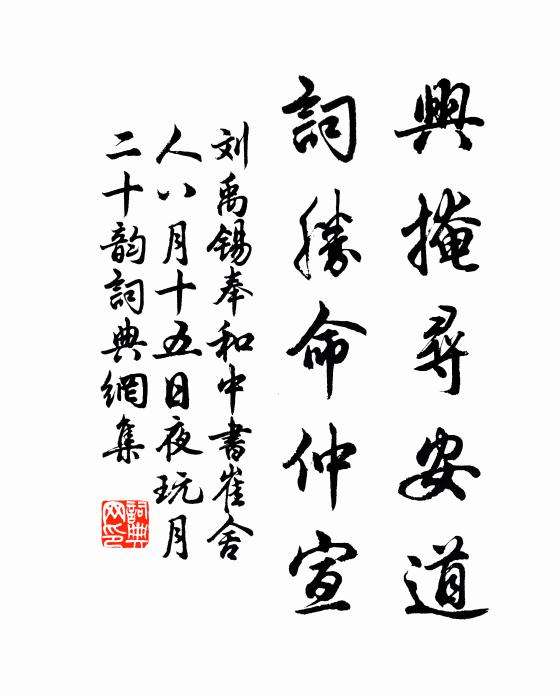 興掩尋安道
詞勝命仲宣
刘禹锡奉和中書崔舍
人八月十五日夜玩月
二十韵詞典網集
詞典
网印